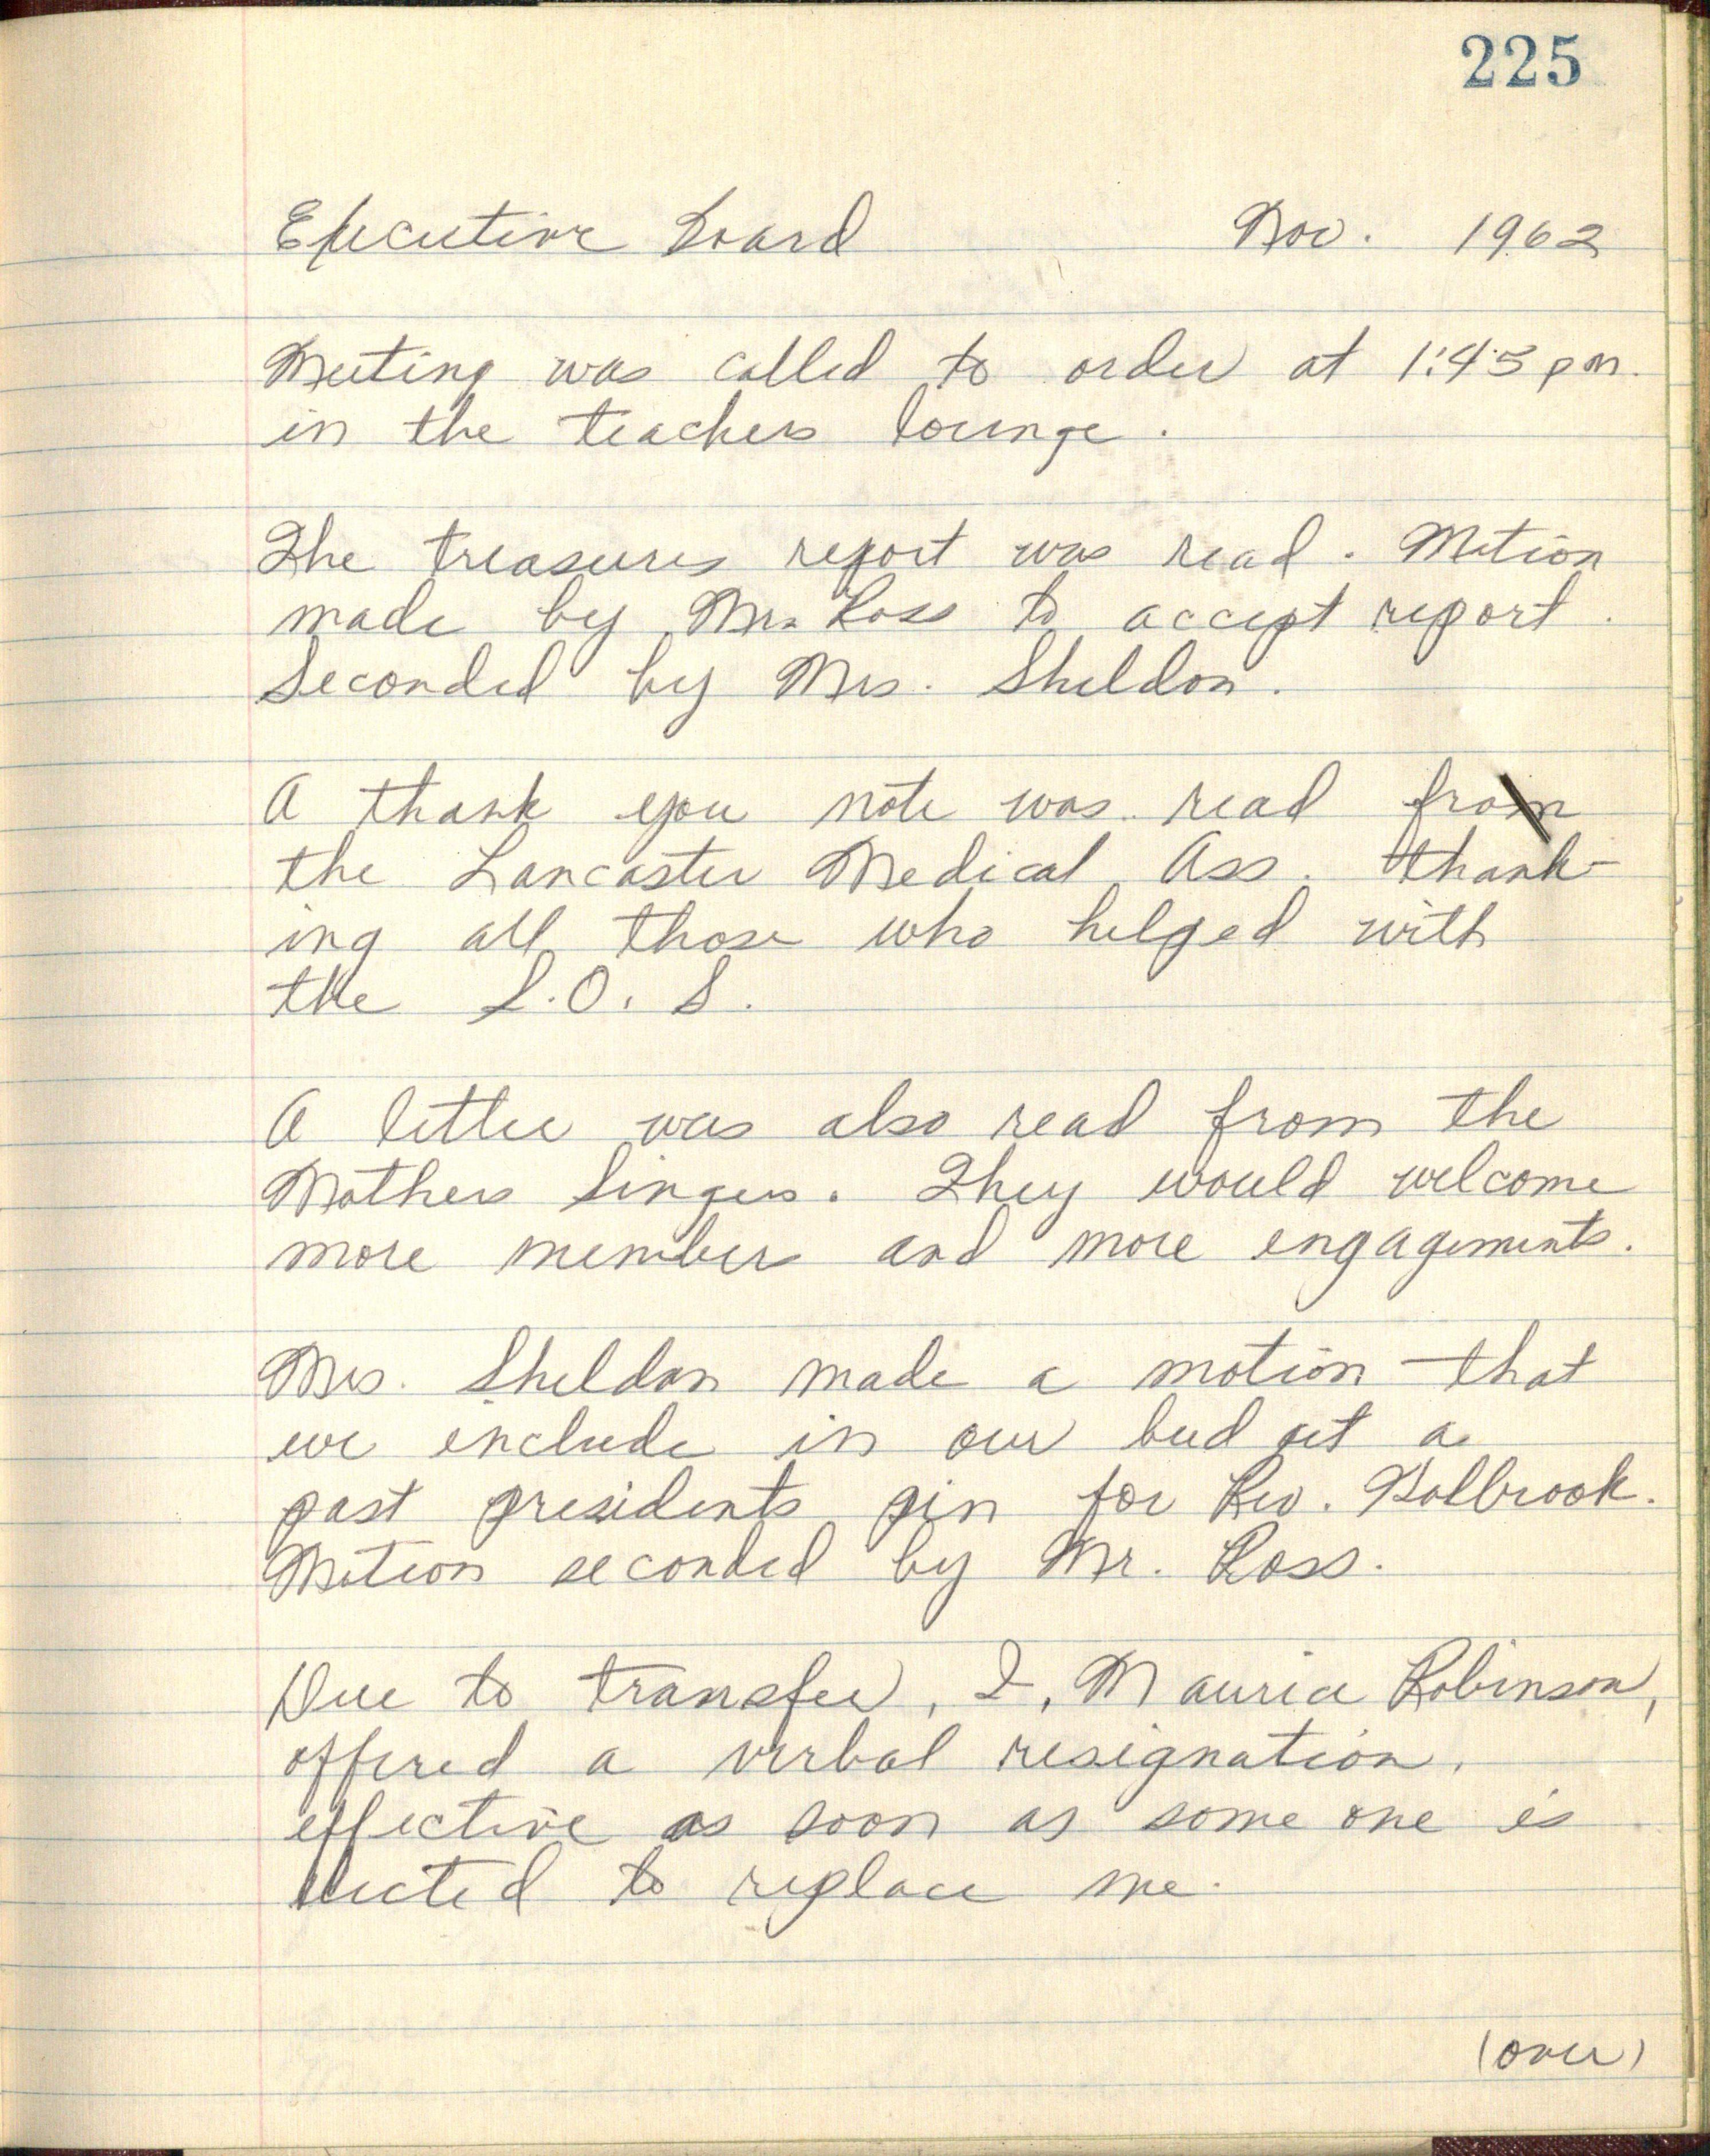 225
Executive Board Nov. 1962
Meeting was called to order at 1:45 pm.
in the teachers lounge.
The treasures report was read. Motion
made by Mr. Ross to accept report.
Seconded by Mrs. Sheldon.
A thank you note was read from
the Lancaster Medical Ass. thank-
ing all those who helped with
the S.O.S.
A letter was also read from the
Mothers Singers. They would welcome
more members and more engagements.
Mrs. Sheldon made a motion that
we include in our budget a
past presidents pin for Rev. Holbrook.
Motion seconded by Mr. Ross.
Due to transfer, I, Maurice Robinson,
offered a verbal resignation,
effective as soon as some one is
elected to replace me.
(over)